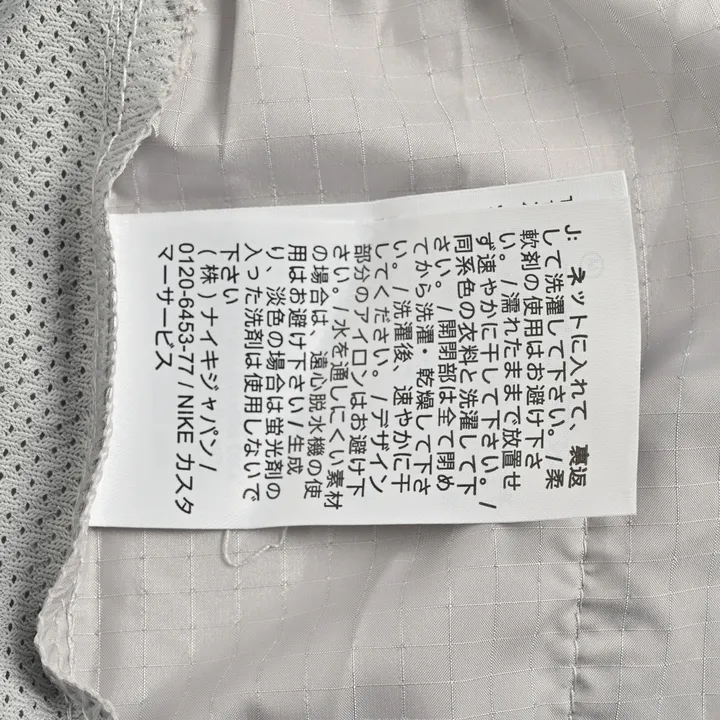 J: ネットに入れて、裏返
して洗濯して下さい。/柔
軟剤の使用はお避け下さ
い。/濡れたままで放置せ
ず速やかに干して下さい。/
同系色の衣料と洗濯して下
さい。/開閉部は全て閉め
てから洗濯・乾燥して下さ
い。/洗濯後、速やかに干
してください。/デザイン
部分のアイロンはお避け下
さい。/水を通しにくい素材
の場合は、遠心脱水機の使
用はお避け下さい/生成
り、淡色の場合は蛍光剤の
入った洗剤は使用しないで
下さい
(株)ナイキジャパン/
0120-6453-77/NIKE カスタ
マーサービス